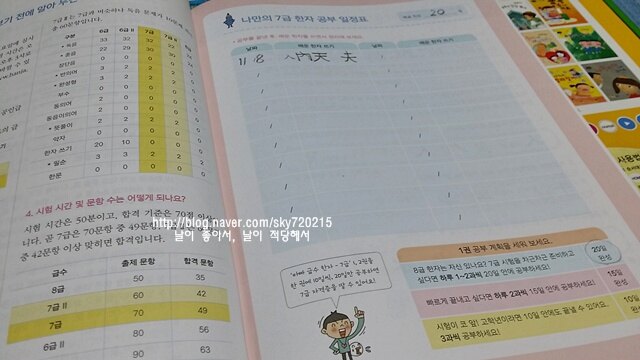 보기 전에 알아 두
7급 II 는 7급과 비슷하나 독음 문제가
총 60문항입니다.
구분 6급 6급 II 7급 7급 II 8급
독음 33
훈음 22 29 30 30 24
장단음 0 0 0 0 0
반의어 3 2 2 2 0
완성형 3 2 2 2 0
부수 0 0 0 0 0
동의어 2 0 0 0 0
동음이의어 2 0 0 0 0
뜻풀이 2 2 2 2 0
약자 0 0 0 0 0
한자 쓰기 20 10 0 0 0
필순 3 3 2 2 2
한문 0 0 0 0 0
4. 시험 시간 및 문항 수는 어떻게 되나요?
시험 시간은 50분이고, 합격 기준은 70점 이상
니다. 곧 7급은 70문항 중 49문항
중 42문항 이상 맞히면 합격입니다.
급수 출제 문항 합격 문항
8급 50 35
7급 II 60 42
7급 70 49
6급 II 80 56
6급 90 63
나만의 7급 한자 공부 일정표
20
날짜 배운 한자 쓰기 날짜 배운 한자 쓰기
11/8 天 夫
http://blog.naver.com/sky720215
날이 좋아서, 날이 적당해서
1권 공부 계획을 세워 보세요.
8급 한자는 자신 있나요? 7급 시험을 차근차근 준비하고
싶다면 하루 1~2과씩 20일 안에 공부하세요!
20일 완성
빠르게 끝내고 싶다면 하루 2과씩 15일 안에 공부하세요!
15일 완성
시험이 코 앞! 고학년이라면 10일 안에도 끝낼 수 있어요.
3과씩 공부하세요!
10일
'아빠 급수 한자 - 7급' 1, 2권을
한 권에 10일씩, 20일만 공부하면
7급 자격증을 딸 수 있어요!